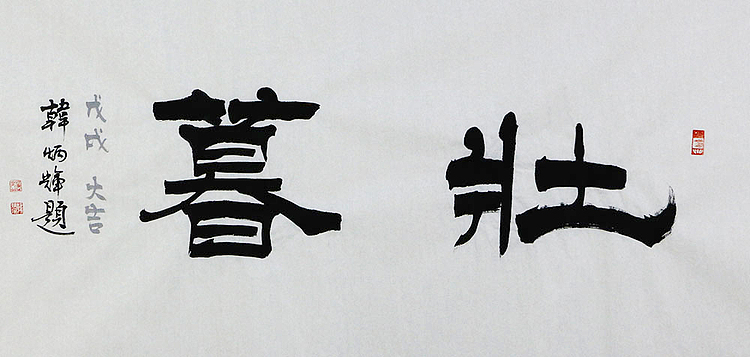 壯暮
戊戌 大吉
韓炳輝題